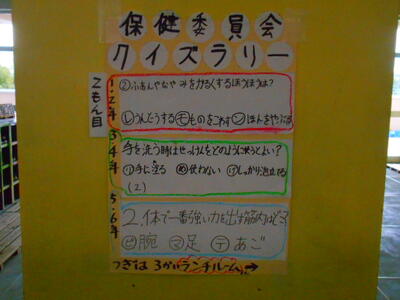 保健委員会
クイズラリー
2もん目
1・2年
②ふあんやなやみをかるくするほうほうは?
しうんどうする モものをこわす ンほんきでやる
3・4年
手を洗う時はせっけんをどのように使うとよい?
け手に塗る め使わない けしっかり泡立てる
(2)
5・6年
2.体で一番強い力を出す筋肉はどこ?
ヒ腕 マ足 テあご
つぎは3かいランチルーム→